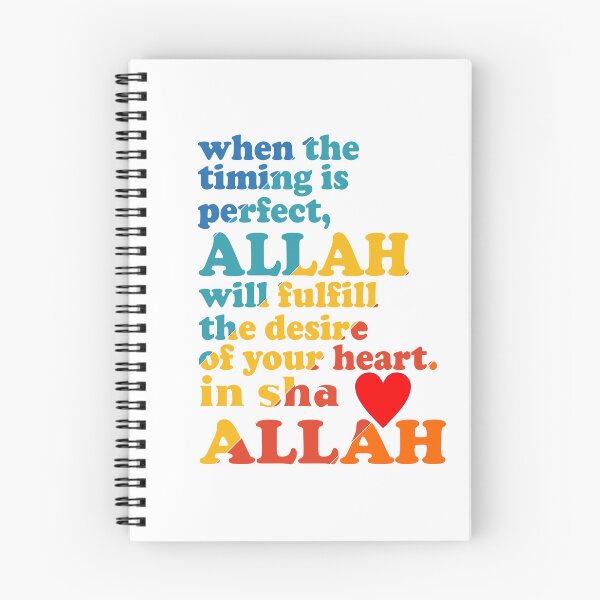 when the
timing is
perfect,
ALLAH
will fulfill
the desire
of your heart.
in sha
ALLAH